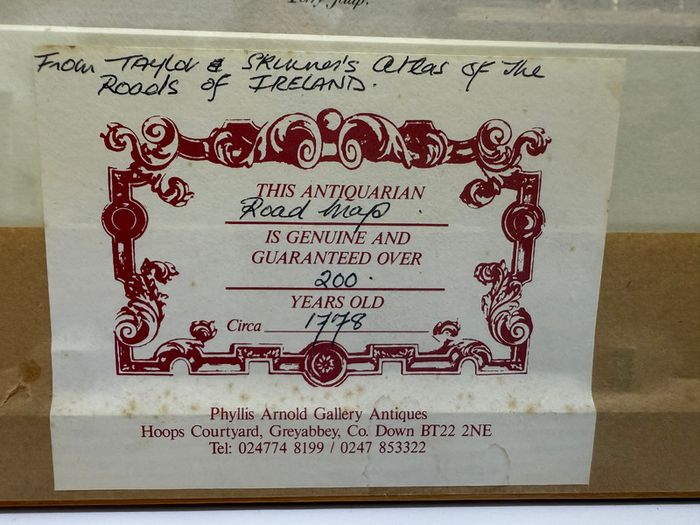 From TAYLOR & SKINNER'S Atlas of The
Roads of IRELAND.
THIS ANTIQUARIAN
Road Map.
IS GENUINE AND
GUARANTEED OVER
200.
YEARS OLD
Circa 1778
Phyllis Arnold Gallery Antiques
Hoops Courtyard, Greyabbey, Co. Down BT22 2NE
Tel: 024774 8199 / 0247 853322